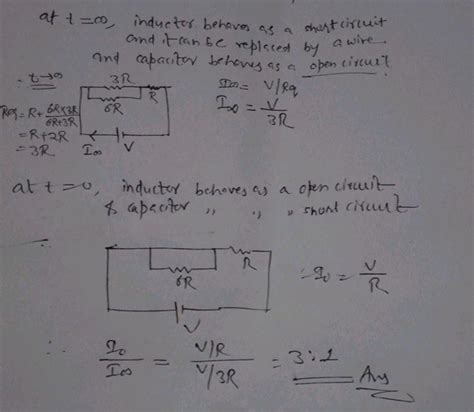 at t = ∞, inductor behaves as a short circuit
and it can be replaced by a wire
and capacitor behaves as a open circuit
∴ t→∞
3R
R
6R
V
I∞
Req = R + 6R×3R / 6R+3R
= R + 2R
= 3R
I∞ = V/Rq
I∞ = V / 3R
at t = 0, inductor behaves as a open circuit
& capacitor ,, ,, ,, short circuit
R
6R
V
∴ I0 = V / R
∴ I0 / I∞ = V/R / V/3R = 3:1 Ans